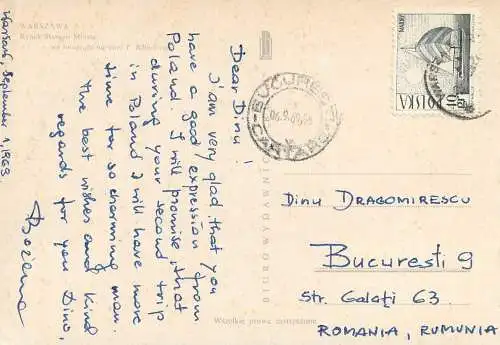 WARSZAWA
Rynek Starego Miasta
Warsaw, September 1, 1969.
Dear Dinu!
I am very glad that you
have a good expression from
Poland. I will promise, that
during your second trip
in Poland I will have more
time for so charming man.
The best wishes and kind
regards for you Dino,
Bożena
BIURO WYDAWNICZE
Wszelkie prawa zastrzeżone
BUCUREȘTI
CARTARE
POLSKA
Dinu DRAGOMIRESCU
Bucuresti 9
Str. Galați 63.
ROMANIA, RUMUNIA